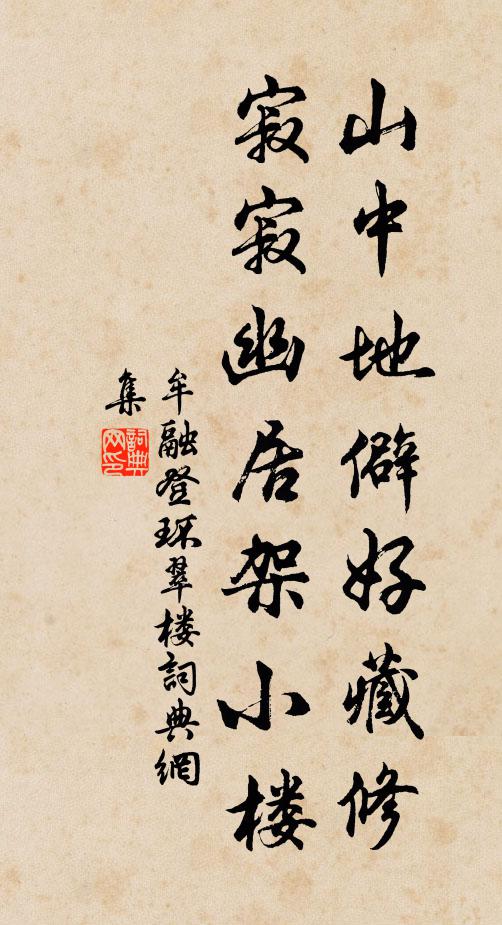 山中地僻好藏修
寂寂幽居架小楼
牟融登环翠楼詞典網
集
詞典网印